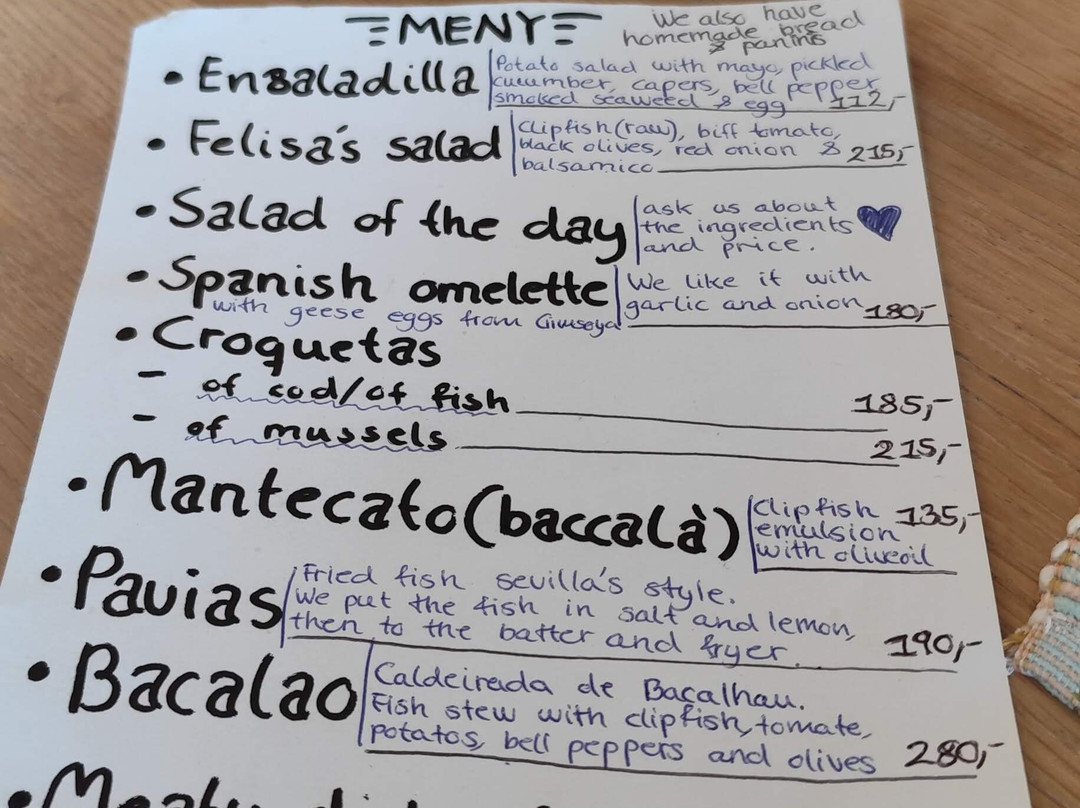 MENY
We also have
homemade bread
& paninis
• Ensaladilla
Potato salad with mayo, pickled
cucumber, capers, bell pepper
smoked seaweed & egg 112,-
• Felisa's salad
Clipfish (raw), biff tomato,
black olives, red onion &
balsamico 215,-
• Salad of the day
ask us about
the ingredients
and price.
• Spanish omelette
with geese eggs from Gimsøya
We like it with
garlic and onion 180,-
• Croquetas
- of cod/of fish 185,-
- of mussels 215,-
• Mantecato (baccalà)
Clipfish 135,-
emulsion
with oliveoil
• Pavias
Fried fish sevilla's style.
We put the fish in salt and lemon,
then to the batter and fryer. 190,-
• Bacalao
Caldeirada de Bacalhau.
Fish stew with clipfish, tomate,
potatos, bell peppers and olives 280,-